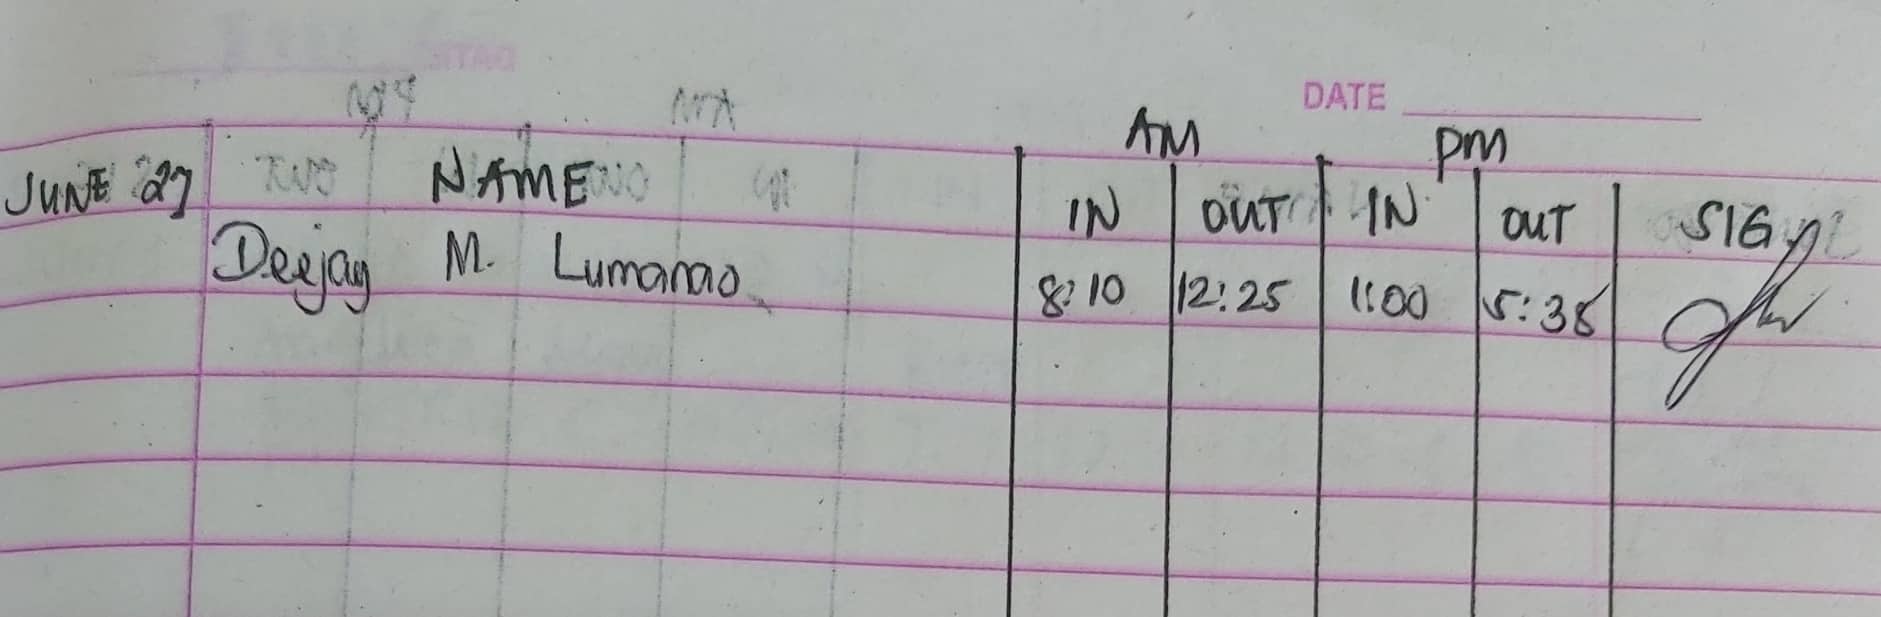 DATE
AM PM
JUNE 27 NAME IN OUT IN OUT SIG
Deejay M. Lumanao 8:10 12:25 1:00 5:38